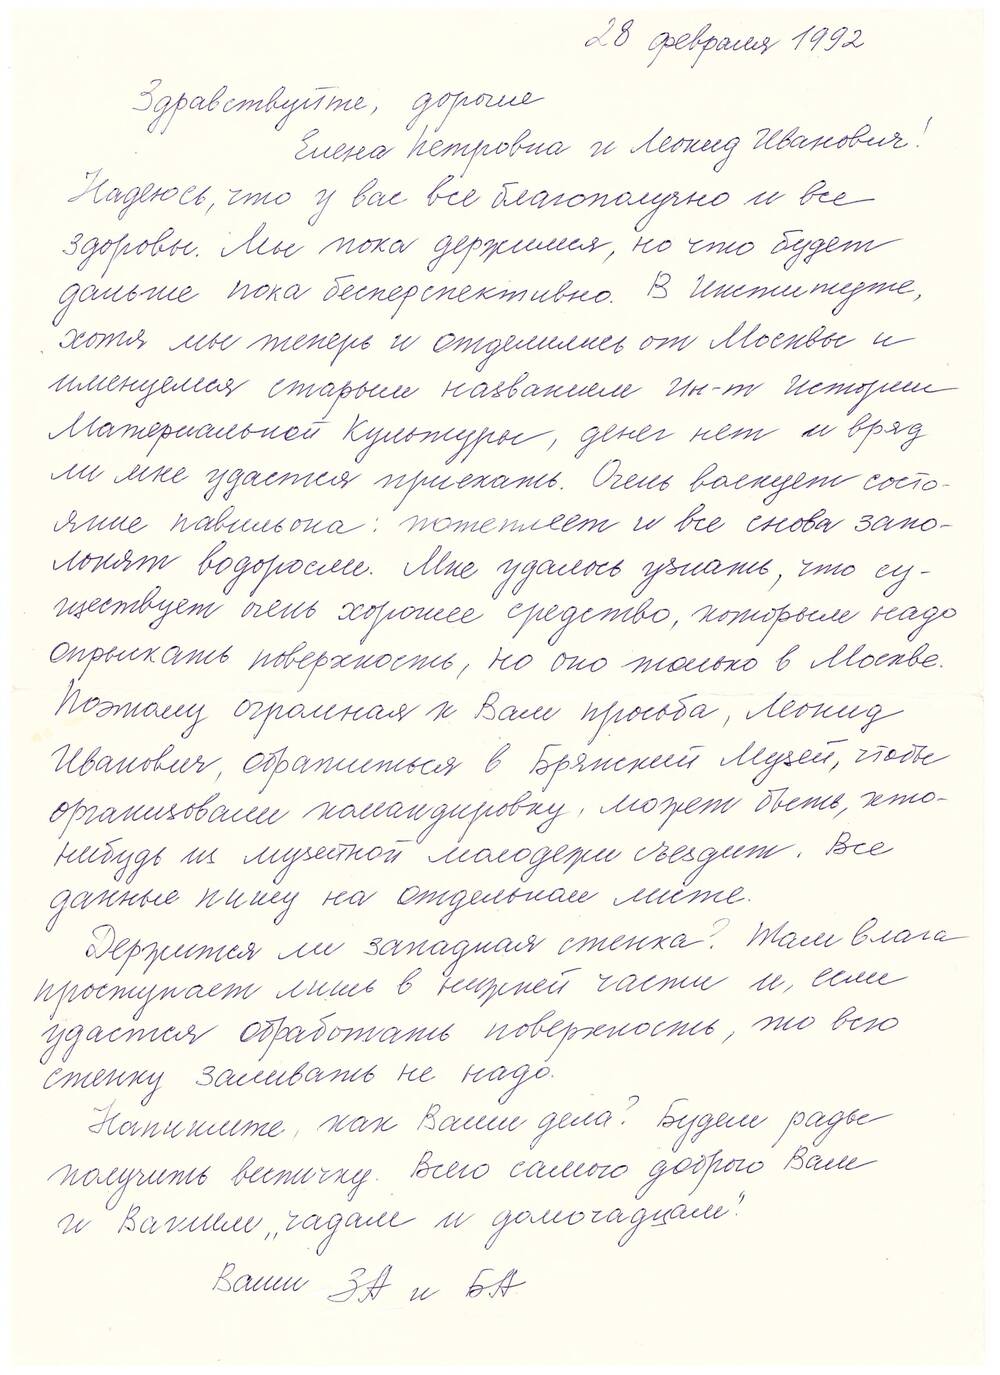 28 февраля 1992
Здравствуйте, дорогие
Елена Петровна и Леонид Иванович!
Надеюсь, что у вас все благополучно и все
здоровы. Мы пока держимся, но что будет
дальше пока бесперспективно. В Институте,
хотя мы теперь и отделились от Москвы и
именуемся старым названием Ин-т Истории
Материальной Культуры, денег нет и вряд
ли мне удастся приехать. Очень волнует состо-
яние павильона: потеплеет и все снова запо-
лонят водоросли. Мне удалось узнать, что су-
ществует очень хорошее средство, которым надо
опрыскать поверхность, но оно только в Москве.
Поэтому огромная к Вам просьба, Леонид
Иванович, обратиться в Брянский Музей, чтобы
организовали командировку, может быть, кто-
нибудь из музейной молодежи съездит. Все
данные пишу на отдельном листе.
Держится ли западная стенка? Там влага
проступает лишь в нижней части и, если
удастся обработать поверхность, то всю
стенку заливать не надо.
Напишите, как Ваши дела? Будем рады
получить весточку. Всего самого доброго Вам
и Вашим „чадам и домочадцам".
Ваши ЗА и БА